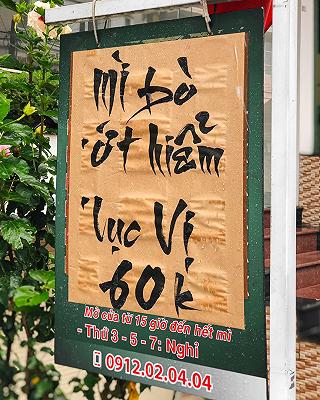 mì bò
ớt hiểm
lục vị
60k
Mở cửa từ 15 giờ đến hết mì
- Thứ 3 - 5 - 7: Nghỉ
0912.02.04.04